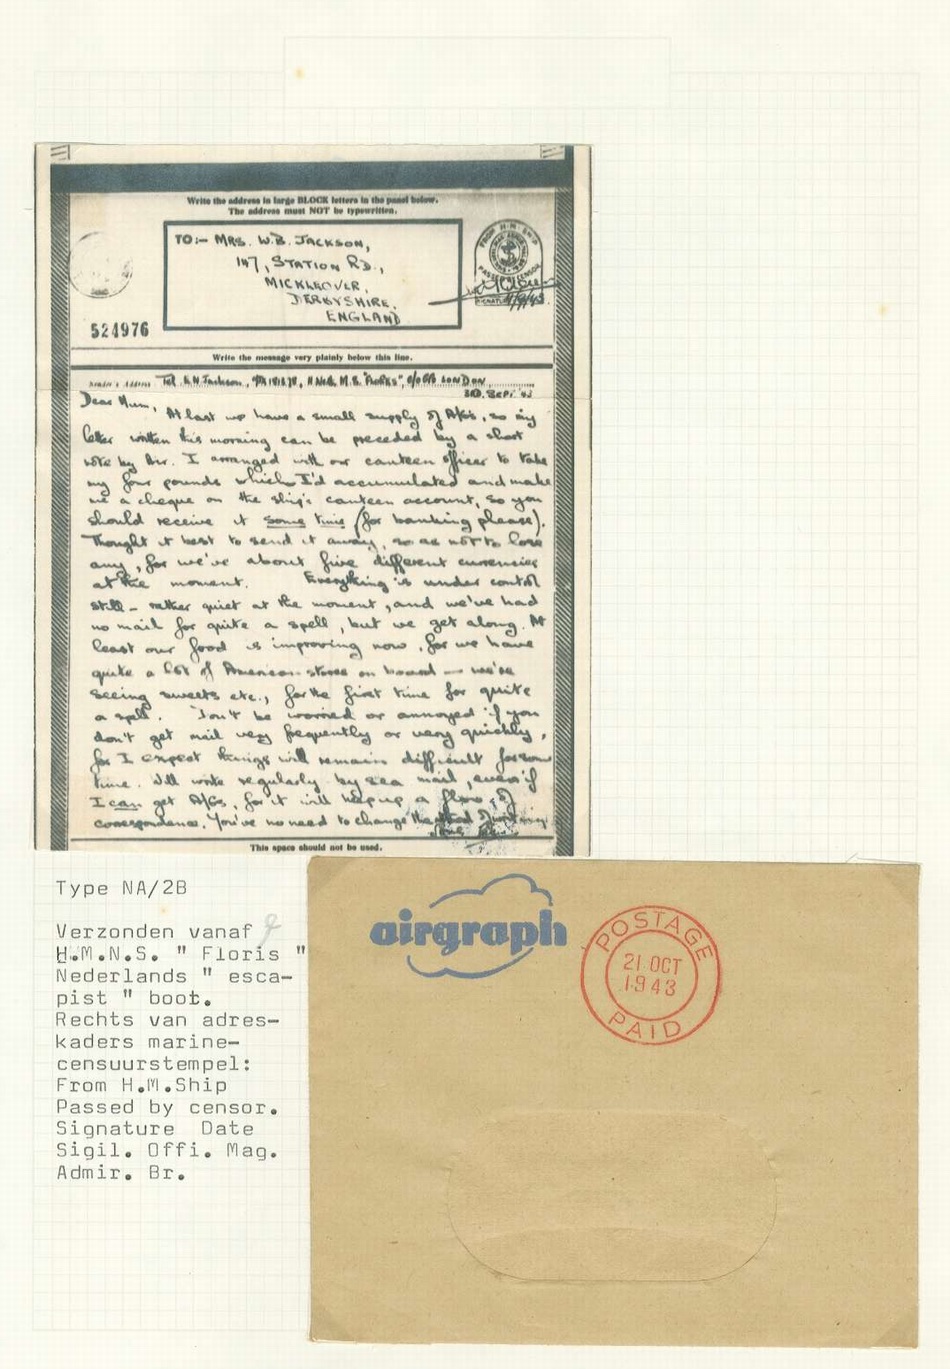 Write the address in large BLOCK letters in the panel below.
The address must NOT be typewritten.
TO:- MRS. W.B. JACKSON,
147, STATION RD.,
MICKLEOVER,
DERBYSHIRE.
ENGLAND
FROM H.M. SHIP
PASSED CENSOR
524976
Write the message very plainly below this line.
Sender's Address Tel. K.N. Jackson, H. Neth. M.S. "FLORIS", c/o GPO LONDON
3RD. SEPT '43
Dear Mum, At last we have a small supply of A/Gs, so any
letter written this morning can be preceded by a short
note by Air. I arranged with our canteen officer to take
my four pounds which I'd accumulated and make
me a cheque on the ship's canteen account, so you
should receive it some time (for banking please).
Thought it best to send it away, so as not to lose
any, for we've about five different currencies
at the moment. Everything is under control
still - rather quiet at the moment, and we've had
no mail for quite a spell, but we get along. At
least our food is improving now, for we have
quite a lot of American stores on board - we're
seeing sweets etc., for the first time for quite
a spell. Don't be worried or annoyed if you
don't get mail very frequently or very quickly,
for I expect things will remain difficult for some
time. I'll write regularly by sea mail, even if
I can get A/Gs, for it will keep up a flow of
correspondence. You've no need to change the method of writing
This space should not be used.
Type NA/2B
Verzonden vanaf
H.M.N.S. " Floris "
Nederlands " esca-
pist " boot.
Rechts van adres-
kaders marine-
censuurstempel:
From H.M.Ship
Passed by censor.
Signature Date
Sigil. Offi. Mag.
Admir. Br.
airgraph
POSTAGE
21 OCT
1943
PAID